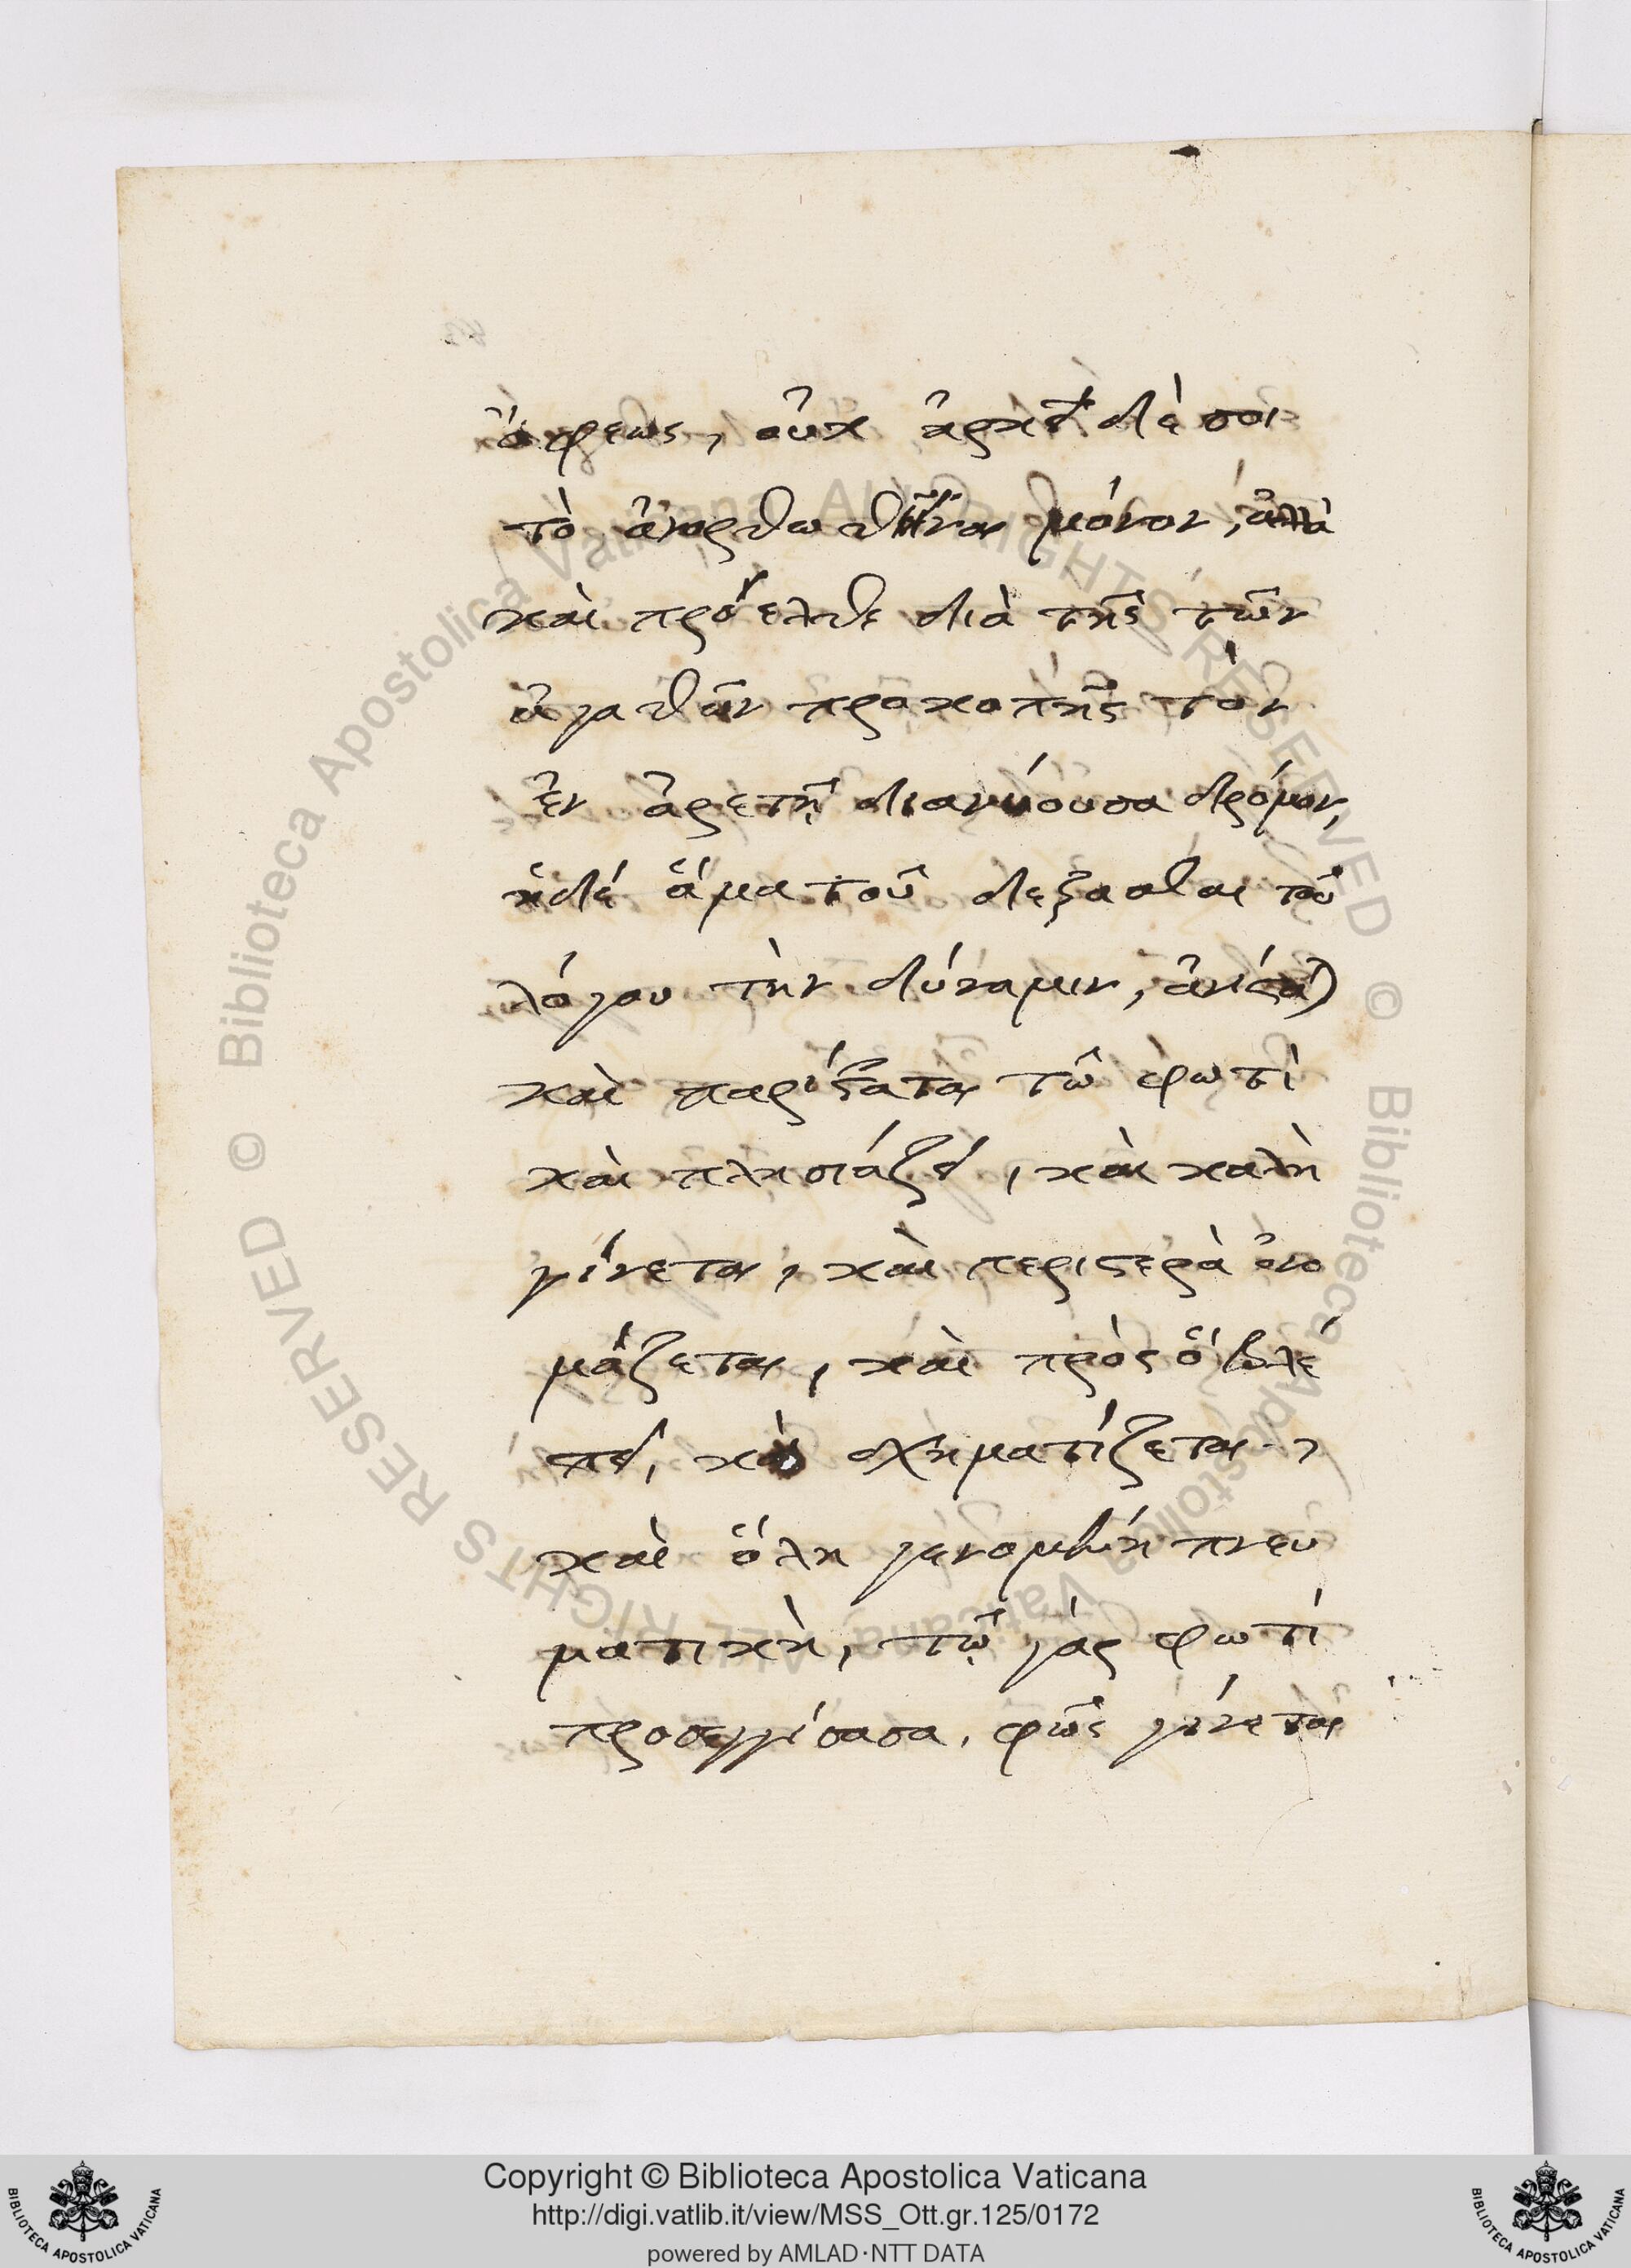 ὄφεως, οὐκ ἀρκεῖ δὲ σοι
τὸ ἀνορθωθῆναι μόνον, ἀλλὰ
καὶ πρόελθε διὰ τῆς τῶν
ἀγαθῶν προκοπῆς τὸν
ἐν ἀρετῇ διανύουσα δρόμον,
ἡδέ ἅμα τοῦ δέξασθαι τοῦ
λόγου τὴν δύναμιν,
καὶ παρίσταται τῶ φωτὶ
καὶ πλησιάζει, καὶ καλὴ
γίνεται, καὶ περιστερὰ ὀνο
μάζεται, καὶ πρὸς ὅ βλέ
πει, καὶ σχηματίζεται,
καὶ ὅλη γενομένη πνευ
ματικὴ, τῷ γὰρ φωτὶ
προσεγγίσασα, φῶς γίνεται
© Biblioteca Apostolica Vaticana ALL RIGHTS RESERVED
© Biblioteca Apostolica Vaticana ALL RIGHTS RESERVED
Copyright © Biblioteca Apostolica Vaticana
http://digi.vatlib.it/view/MSS_Ott.gr.125/0172
powered by AMLAD·NTT DATA
BIBLIOTECA APOSTOLICA VATICANA
BIBLIOTECA APOSTOLICA VATICANA